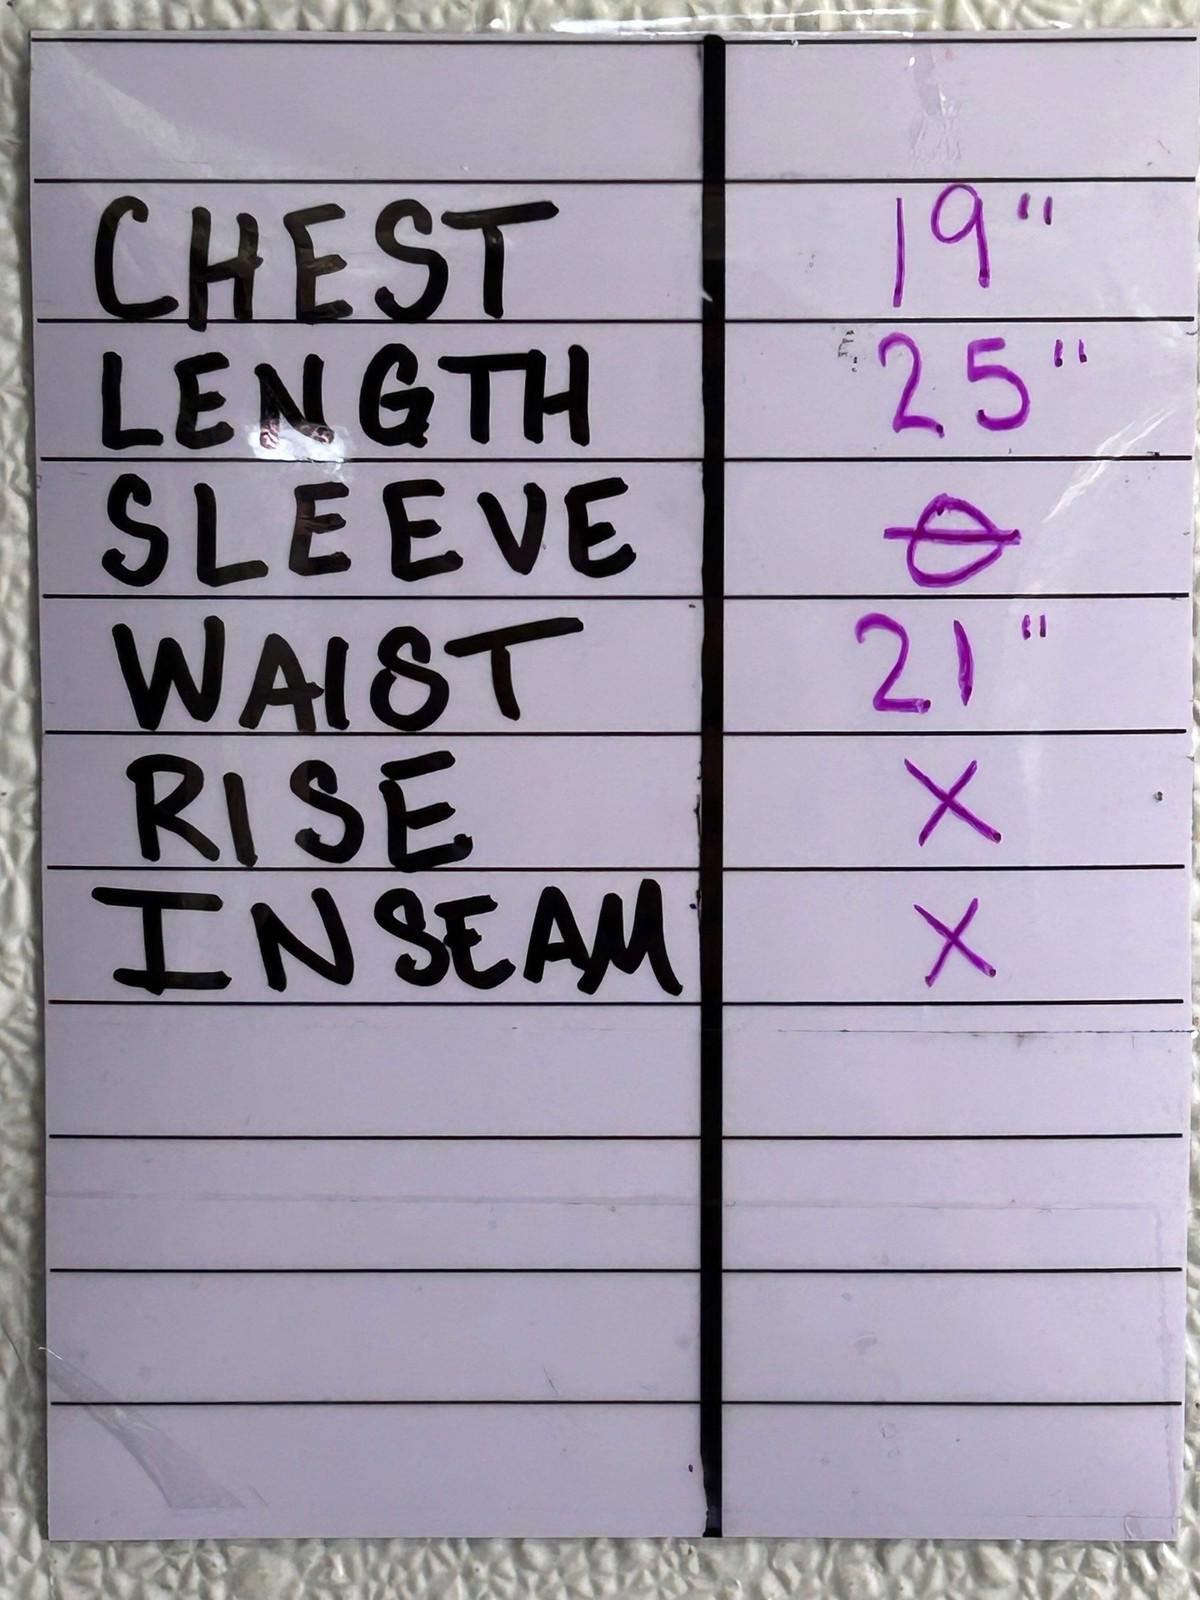 CHEST 19"
LENGTH 25"
SLEEVE ⊖
WAIST 21"
RISE X
INSEAM X